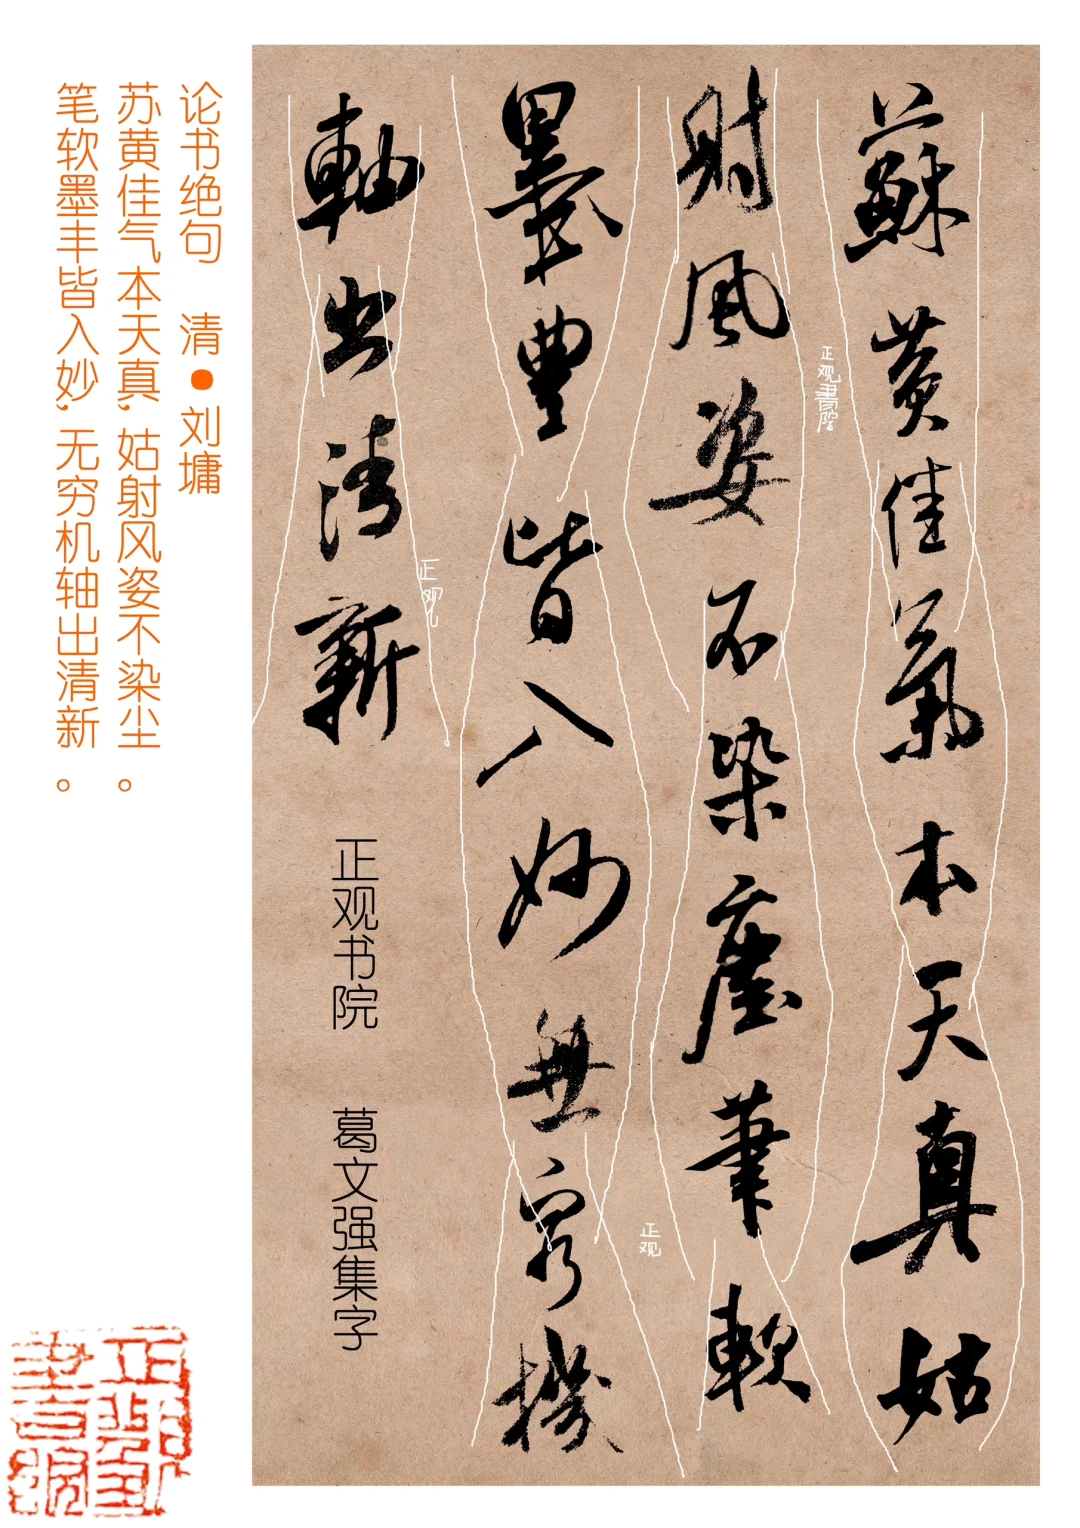 蘇黄佳氣本天真姑
射風姿不染塵筆軟
墨豐皆入妙無窮機
軸出清新
正观书院 葛文强集字
论书绝句 清•刘墉
苏黄佳气本天真，姑射风姿不染尘。
笔软墨丰皆入妙，无穷机轴出清新。
正观書院
正观
正观